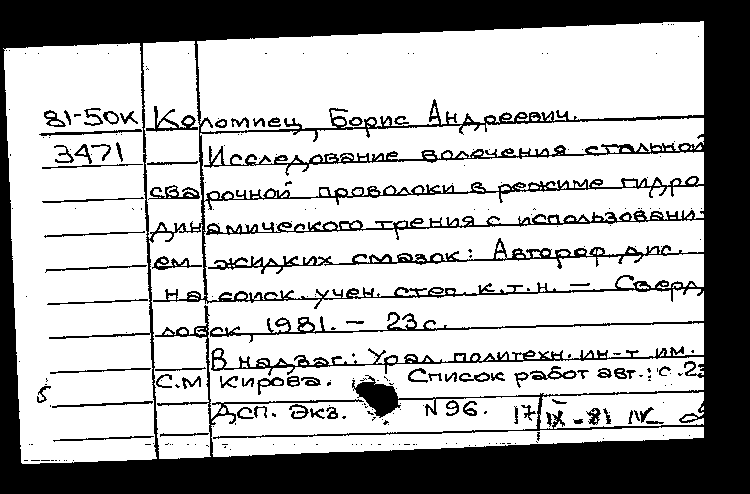 81-50к Коломиец, Борис Андреевич.
3471 Исследование волочения стальной
сварочной проволоки в режиме гидро
динамического трения с использовани-
ем жидких смазок: Автореф дис.
на соиск. учен. степ. к.т.н. — Сверд
ловск, 1981. — 23 с.
В надзаг.: Урал. политехн. ин-т им.
С.М Кирова. Список работ авт.: с.23
Дсп. Экз. N 96. 17/IX-81